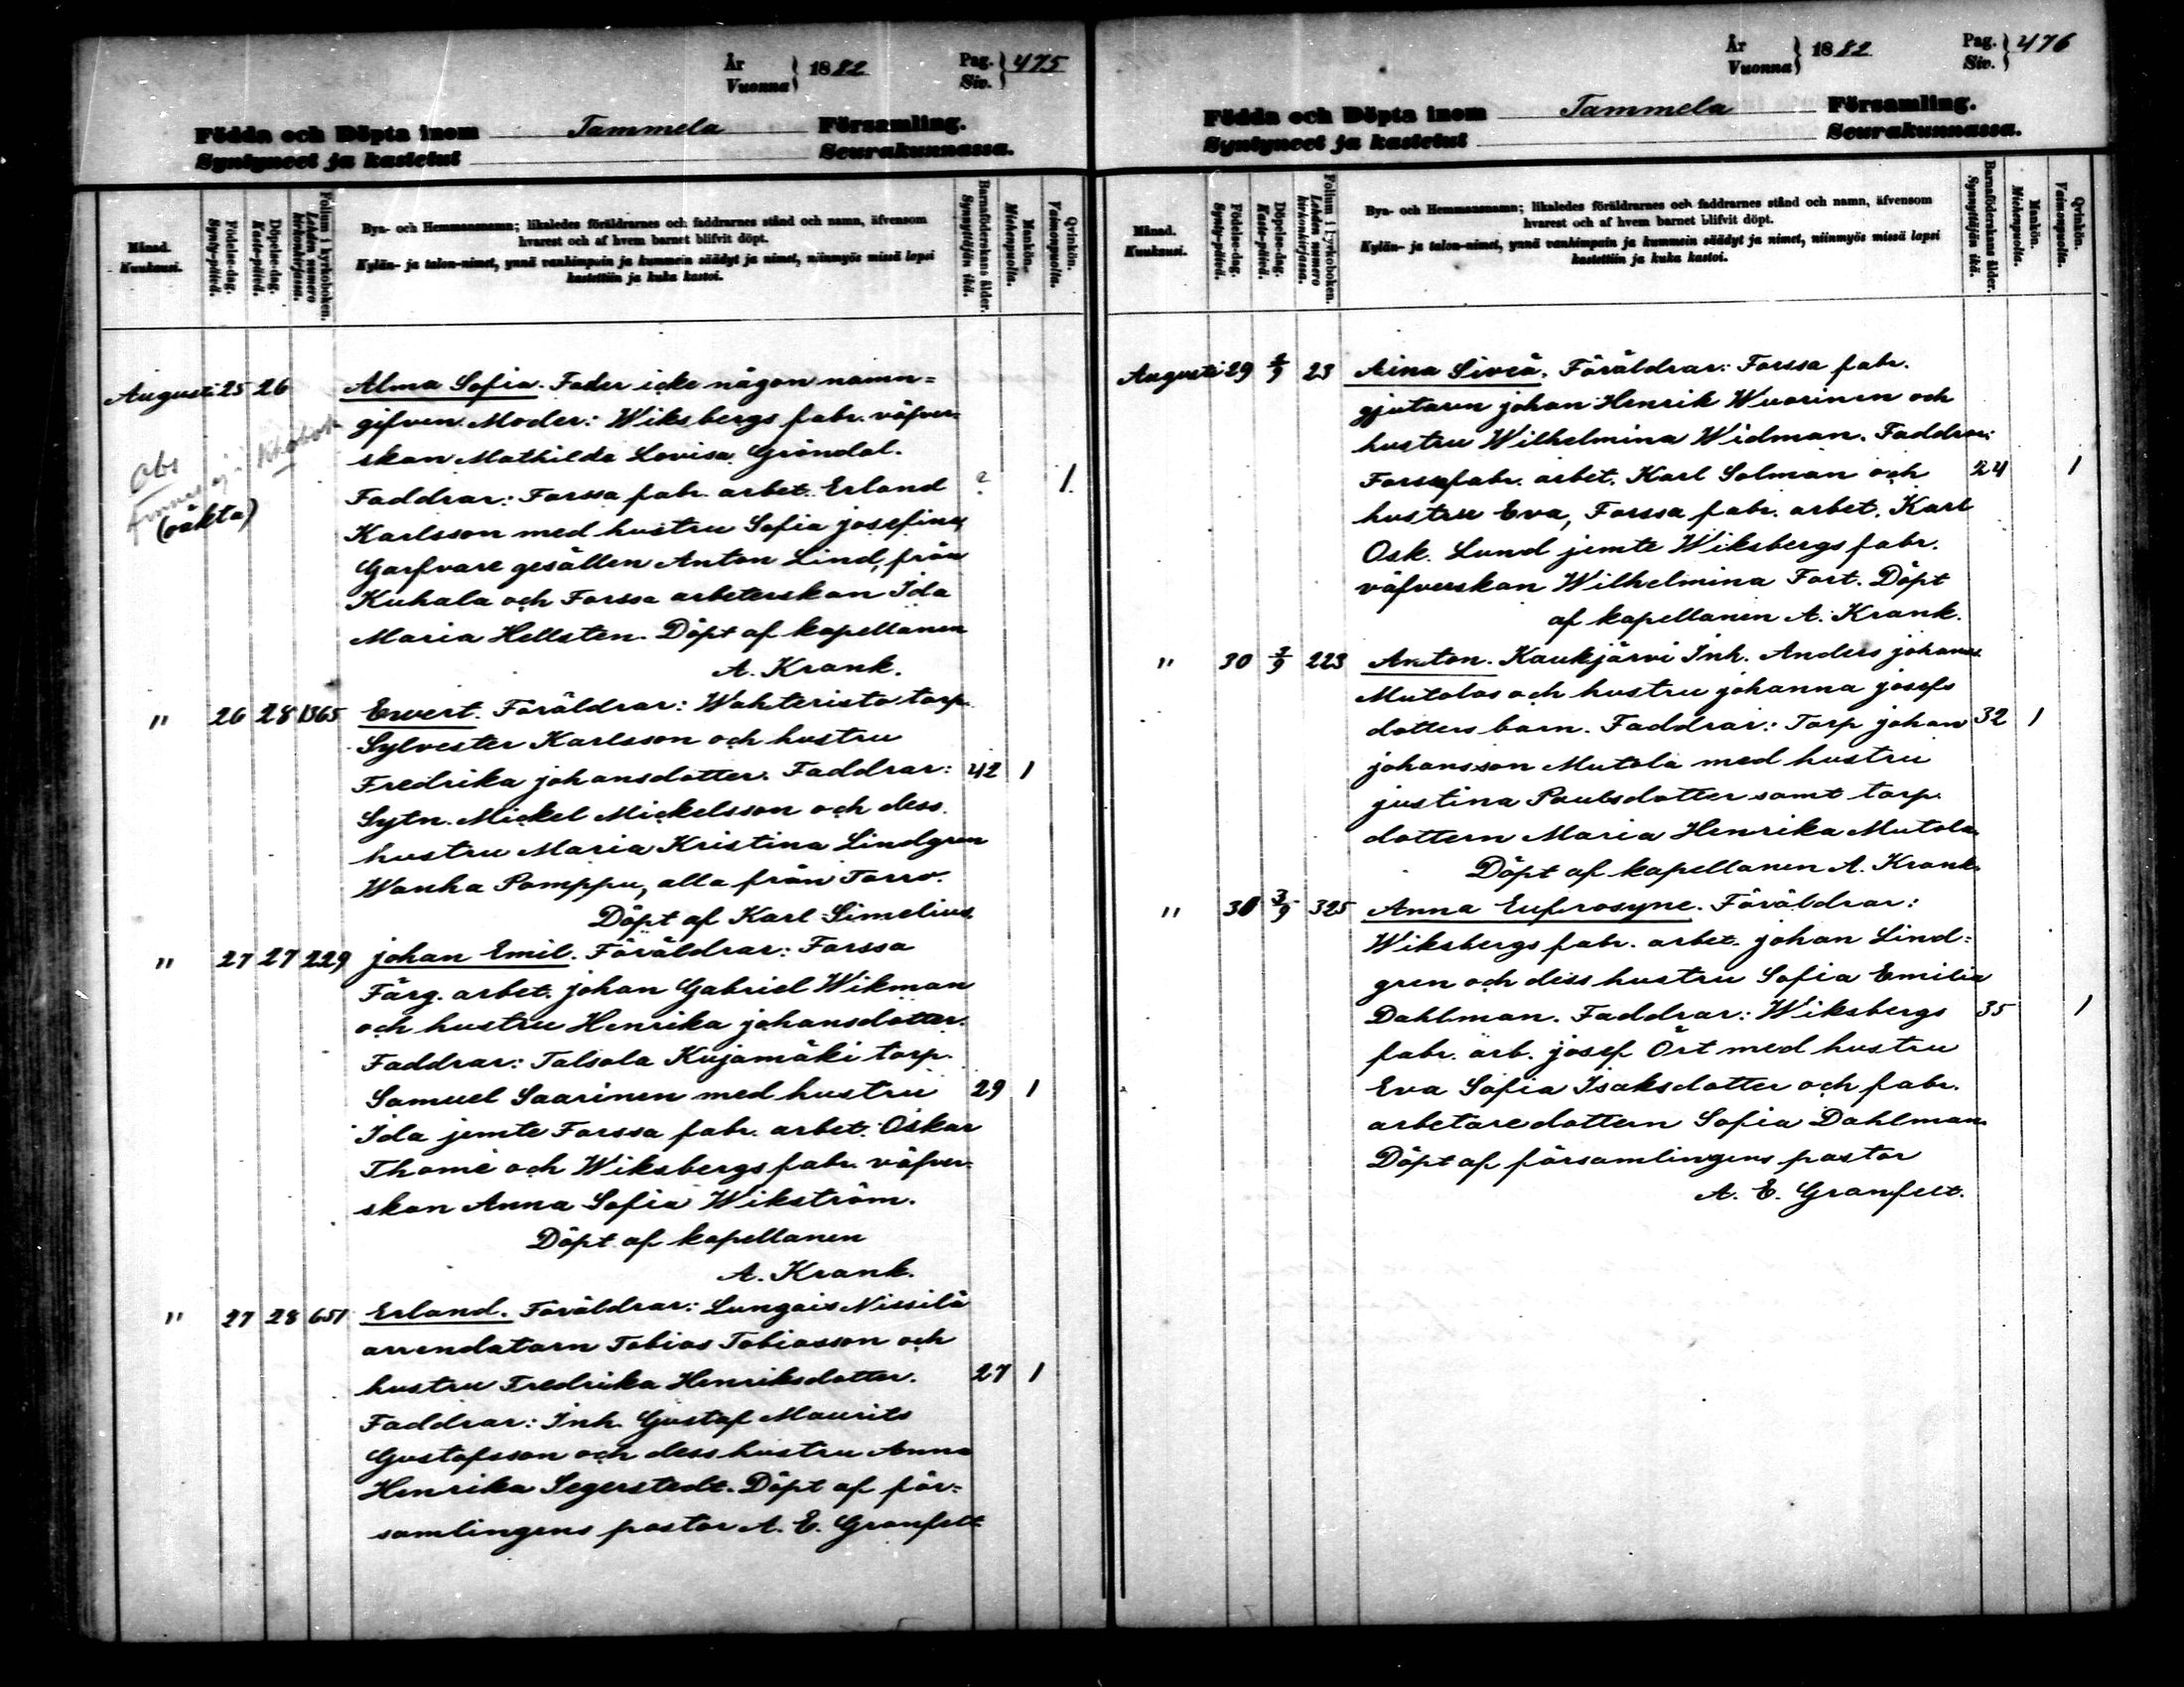 År
Vuonna } 1882
Pag.
Siv. } 475
Födda och Döpta inom Tammela Församling.
Syntyneet ja kastetut Seurakunnassa.
Månad.
Kuukausi.
Födelse-dag.
Synty-päivä.
Döpelse-dag.
Kaste-päivä.
Folium i kyrkoboken.
Lehden numero
kirkonkirjassa.
Bya- och Hemmansnamn; likaledes föräldrarnes och faddrarnes stånd och namn, äfvensom
hvarest och af hvem barnet blifvit döpt.
Kylän- ja talon-nimet, ynnä vanhimpain ja kummein säädyt ja nimet, niinmyös missä lapsi
kastettiin ja kuka kastoi.
Barnaföderskans ålder.
Synnyttäjän ikä.
Mankön.
Miehenpuolta.
Qvinkön.
Vaimonpuolta.
Augusti 25 26 Alma Sofia. Fader icke någon namn=
gifven. Moder: Wiksbergs fabr. väfver-
skan Mathilda Lovisa Gröndal.
Obs
Finnes ej i
(oäkta)
Faddrar: Forssa fabr. arbet. Erland ? 1.
Karlsson med hustru Sofia josefina,
Garfvare gesällen Anton Lind, från
Kuhala och Forssa arbeterskan Ida
Maria Hellsten. Döpt af kapellanen
A. Krank.
" 26 28 1365 Ewert. Föräldrar: Wahteristo torp.
Sylvester Karlsson och hustru
Fredrika johansdotter. Faddrar: 42 1
Sytn. Mickel Mickelsson och dess
hustru Maria Kristina Lindgren
Wanha Pamppu, alla från Torro.
Döpt af Karl Simelius.
" 27 27 229 johan Emil. Föräldrar: Forssa
Färg. arbet. johan Gabriel Wikman
och hustru Henrika johansdotter.
Faddrar: Talsola Kujamäki torp.
Samuel Saarinen med hustru 29 1
Ida jemte Forssa fabr. arbet. Oskar
Thomé och Wiksbergs fabr. väfver-
skan Anna Sofia Wikström.
Döpt af kapellanen
A. Krank.
" 27 28 651 Erland. Föräldrar: Lungais Nissilä
arrendatorn Tobias Tobiasson och
hustru Fredrika Henriksdotter. 27 1
Faddrar: Inh. Gustaf Maurits
Gustafsson och dess hustru Anna
Henrika Segerstedt. Döpt af för=
samlingens pastor A. E. Granfelt
År
Vuonna } 1882
Pag.
Siv. } 476
Födda och Döpta inom Tammela Församling.
Syntyneet ja kastetut Seurakunnassa.
Månad.
Kuukausi.
Födelse-dag.
Synty-päivä.
Döpelse-dag.
Kaste-päivä.
Folium i kyrkoboken.
Lehden numero
kirkonkirjassa.
Bya- och Hemmansnamn; likaledes föräldrarnes och faddrarnes stånd och namn, äfvensom
hvarest och af hvem barnet blifvit döpt.
Kylän- ja talon-nimet, ynnä vanhimpain ja kummein säädyt ja nimet, niinmyös missä lapsi
kastettiin ja kuka kastoi.
Barnaföderskans ålder.
Synnyttäjän ikä.
Mankön.
Miehenpuolta.
Qvinkön.
Vaimonpuolta.
Augusti 29 23 Aina Siviä. Föräldrar: Forssa fabr.
gjutaren johan Henrik Wuorinen och
hustru Wilhelmina Widman. Faddrar:
Forssa fabr. arbet. Karl Solman och 24 1
hustru Eva, Forssa fabr. arbet. Karl
Osk. Lund jemte Wiksbergs fabr.
väfverskan Wilhelmina Fort. Döpt
af kapellanen A. Krank.
" 30 3/9 223 Anton. Kaukjärvi Inh. Anders johans.
Mutolas och hustru johanna josefs
dotters barn. Faddrar: Torp johan 32 1
johansson Mutola med hustru
justina Paulsdotter samt torp.
dottern Maria Henrika Mutola.
Döpt af kapellanen A. Krank.
" 30 3/9 325 Anna Eufrosyne. Föräldrar:
Wiksbergs fabr. arbet. johan Lind=
gren och dess hustru Sofia Emilia
Dahlman. Faddrar: Wiksbergs 35 1
fabr. arb. josef Ört med hustru
Eva Sofia Isaksdotter och fabr.
arbetaredottern Sofia Dahlman.
Döpt af församlingens pastor
A. E. Granfelt.